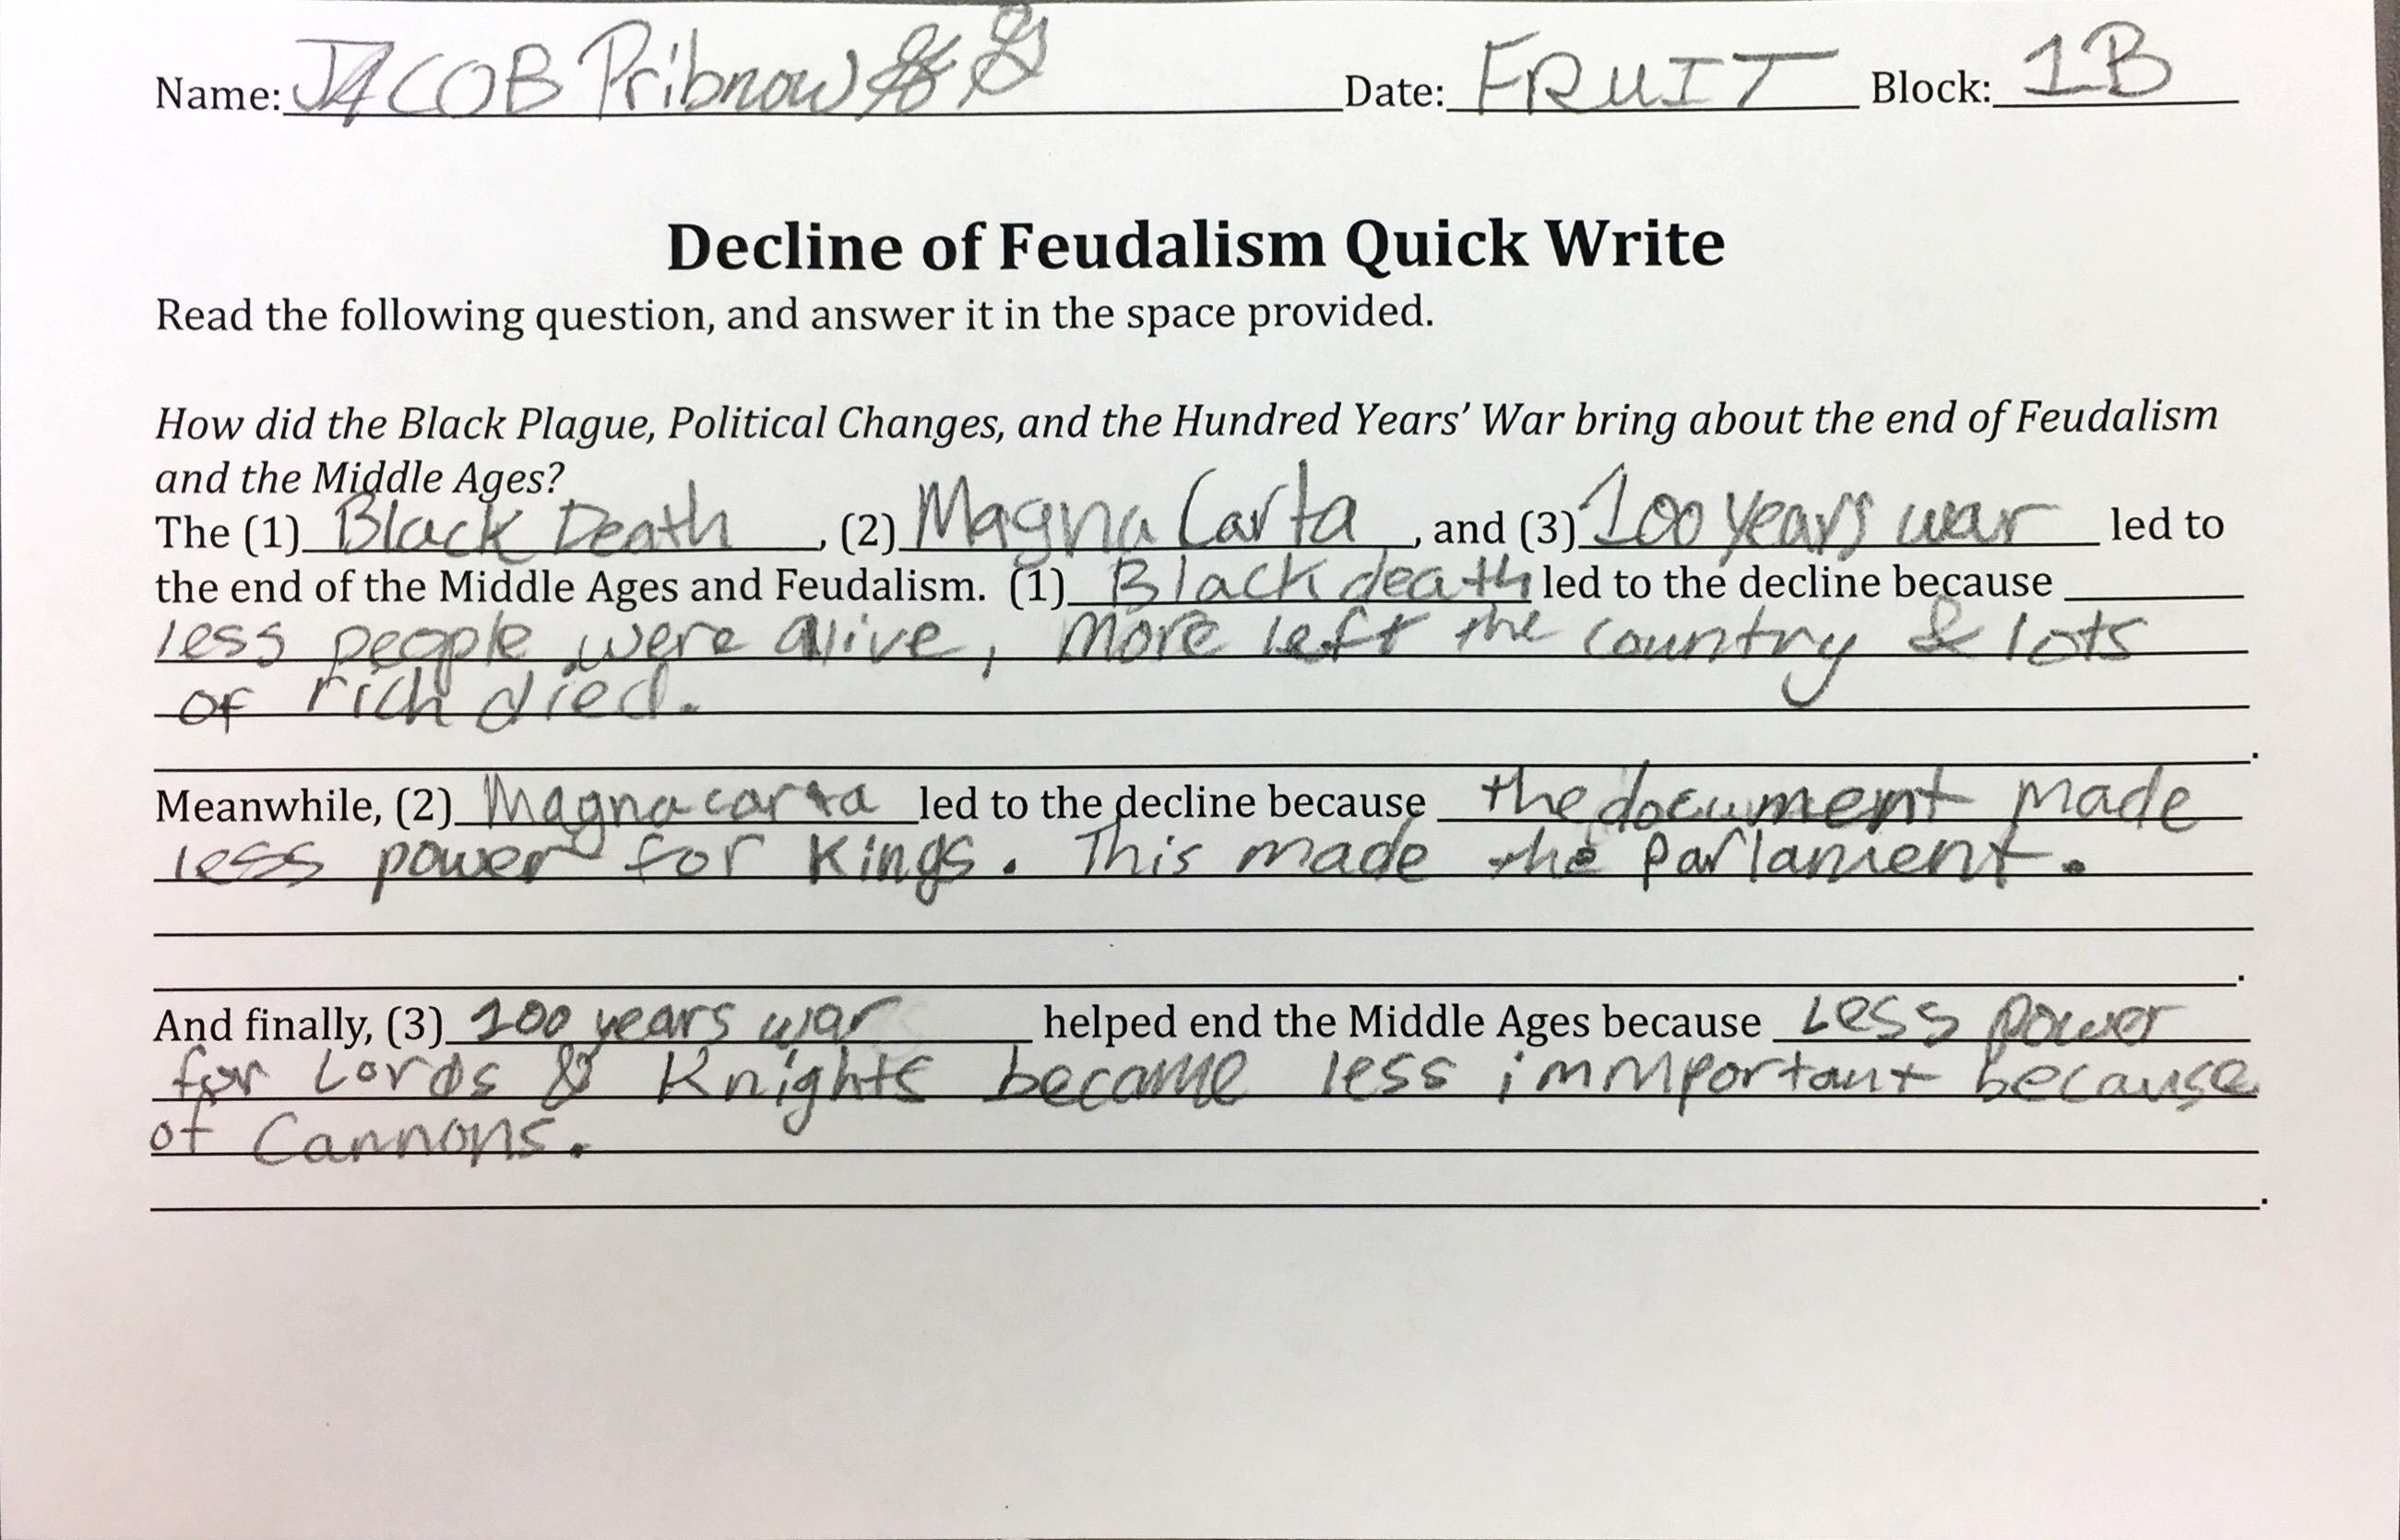 Name: JACOB Pribnow && Date: FRUIT Block: 1B
Decline of Feudalism Quick Write
Read the following question, and answer it in the space provided.
How did the Black Plague, Political Changes, and the Hundred Years' War bring about the end of Feudalism
and the Middle Ages?
The (1) Black Death, (2) Magna Carta, and (3) 100 years war led to
the end of the Middle Ages and Feudalism. (1) Black death led to the decline because
less people were alive, more left the country & lots
of rich died.
.
Meanwhile, (2) Magna carta led to the decline because the document made
less power for Kings. This made the parlament.
.
And finally, (3) 100 years war helped end the Middle Ages because Less power
for Lords & Knights became less immportant because
of Cannons.
.